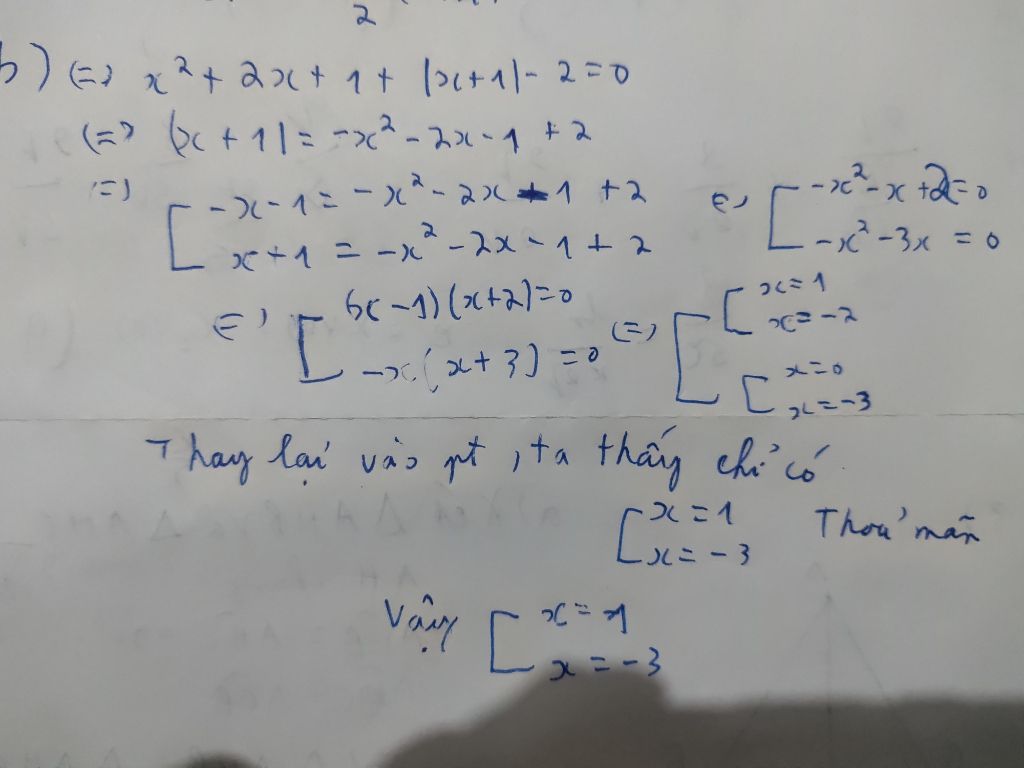 2
b) (=) x² + 2x + 1 + |x+1| - 2 = 0
(=) |x + 1| = -x² - 2x - 1 + 2
=) [ -x - 1 = -x² - 2x - 1 + 2
x + 1 = -x² - 2x - 1 + 2
(=) [ -x² - x + 2 = 0
-x² - 3x = 0
(=) [ (x - 1)(x + 2) = 0
-x(x + 3) = 0
(=) [ [ x = 1
x = -2
[ x = 0
x = -3
Thay lại vào pt, ta thấy chỉ có
[ x = 1
x = -3 Thoả mãn
Vậy [ x = 1
x = -3